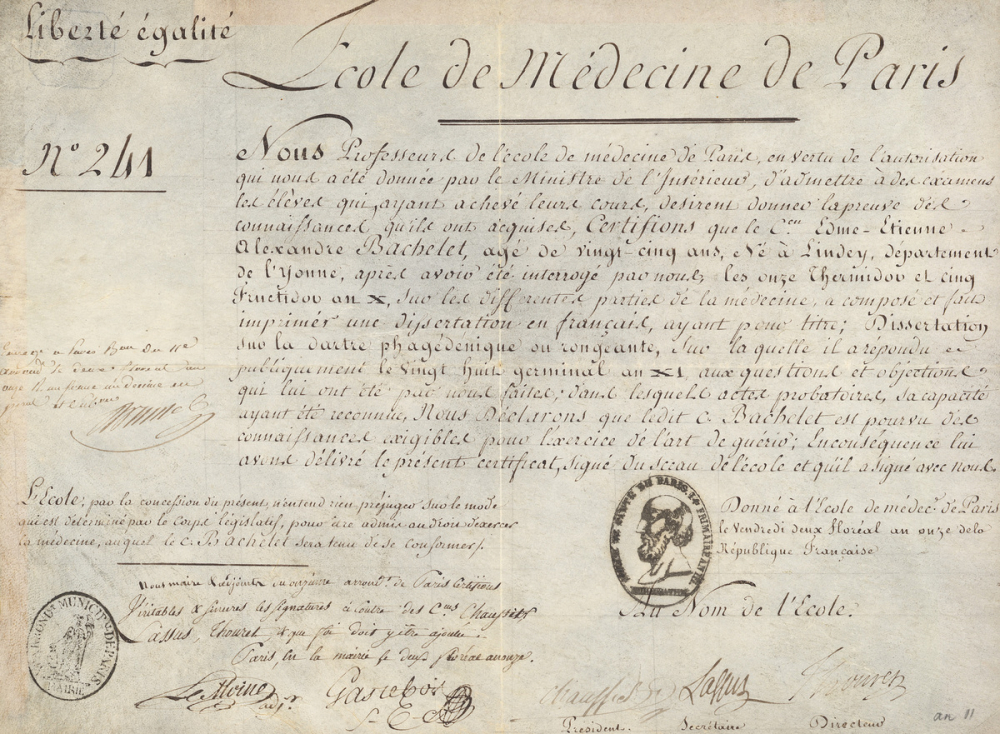 Liberté égalité
École de Médecine de Paris
N° 241
Nous Professeurs de l'école de médecine de Paris, en vertu de l'autorisation
qui nous a été donnée par le Ministre de l'Intérieur, d'admettre à des examens
les élèves qui, ayant achevé leurs cours, désirent donner la preuve des
connaissances qu'ils ont acquises, Certifions que le C.en Edme-Etienne
Alexandre Bachelet, agé de vingt-cinq ans, né à Lindey, département
de l'Yonne, après avoir été interrogé par nous, les onze Thermidor et cinq
Fructidor an X, sur les différentes parties de la médecine, a composé et fait
imprimer une dissertation en français, ayant pour titre; Dissertation
sur la dartre phagédénique ou rongeante, sur la quelle il a répondu
publiquement le vingt huit germinal an XI, aux questions et objections
qui lui ont été par nous faites; dans lesquels actes probatoires, sa capacité
ayant été reconnue, Nous Déclarons que ledit C. Bachelet est pourvu des
connaissances exigibles pour l'exercice de l'art de guérir; En conséquence lui
avons délivré le présent certificat, signé du sceau de l'école et qu'il a signé avec nous.
L'École; par la concession du présent, n'entend rien préjuger sur le mode
qui est déterminé par le Corps législatif, pour être admis au droit d'exercer
la médecine, auquel le C. Bachelet sera tenu de se conformer.
Donné à l'École de médec.e de Paris
le Vendredi deux floréal an onze de la
République Française
Au Nom de l'École.
Nous maire & adjoints du onzième arrond.t de Paris Certifions
Véritables les signatures ci contre des C.ens Chaussier
Lassus, Thouret, et que foi doit y être ajoutée.
Paris, en la mairie le deux floréal an onze.
MUNICIP.té DE PARIS
MAIRIE
Le Moine
adj.t
Chaussier
Lassus
Thouret
Président.
Secrétaire
Directeur
an 11